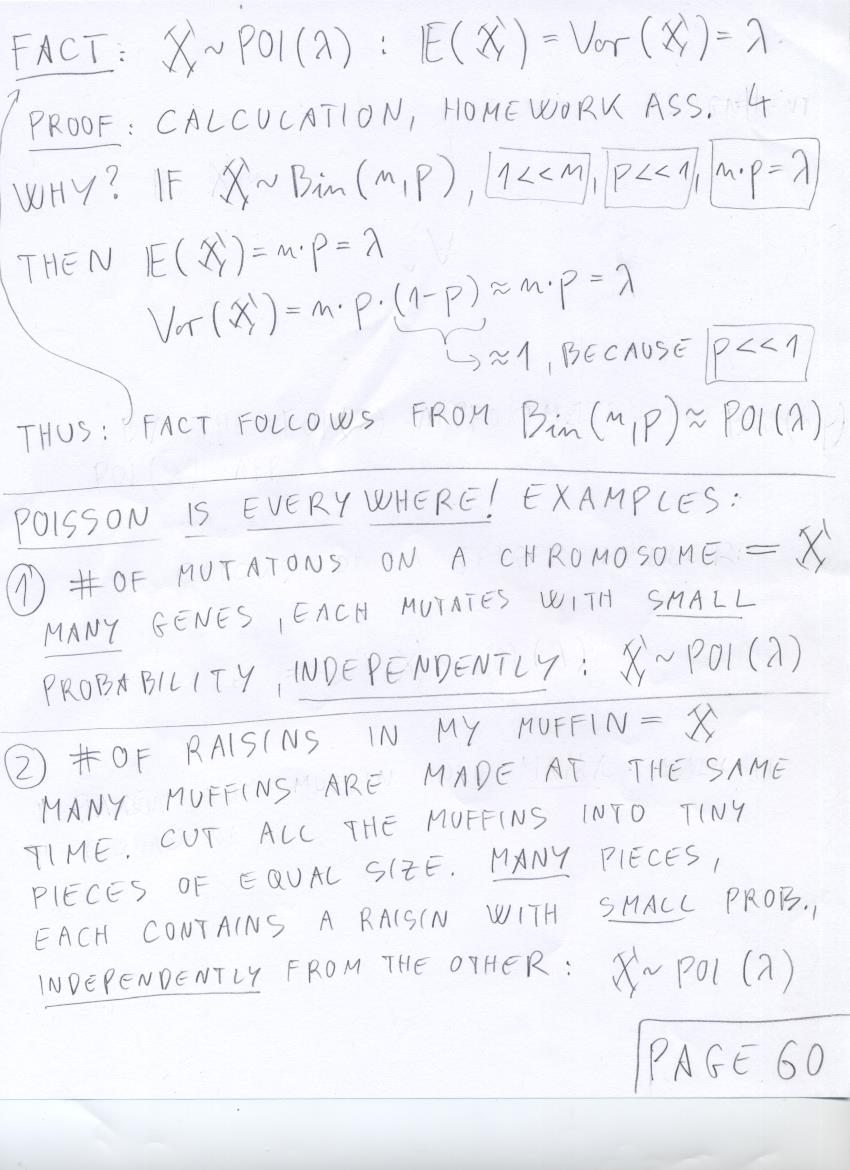 FACT: X ~ POI(λ) : E(X) = Var(X) = λ.
PROOF: CALCULATION, HOMEWORK ASS. 4
WHY? IF X ~ Bin(n,p), 1<<n, p<<1, n·p=λ
THEN E(X) = n·p = λ
Var(X) = n·p·(1-p) ≈ n·p = λ
≈1, BECAUSE p<<1
THUS: FACT FOLLOWS FROM Bin(n,p) ≈ POI(λ)
POISSON IS EVERYWHERE! EXAMPLES:
① # OF MUTATONS ON A CHROMOSOME = X
MANY GENES, EACH MUTATES WITH SMALL
PROBABILITY, INDEPENDENTLY: X ~ POI(λ)
② # OF RAISINS IN MY MUFFIN = X
MANY MUFFINS ARE MADE AT THE SAME
TIME. CUT ALL THE MUFFINS INTO TINY
PIECES OF EQUAL SIZE. MANY PIECES,
EACH CONTAINS A RAISIN WITH SMALL PROB.,
INDEPENDENTLY FROM THE OTHER: X ~ POI(λ)
PAGE 60